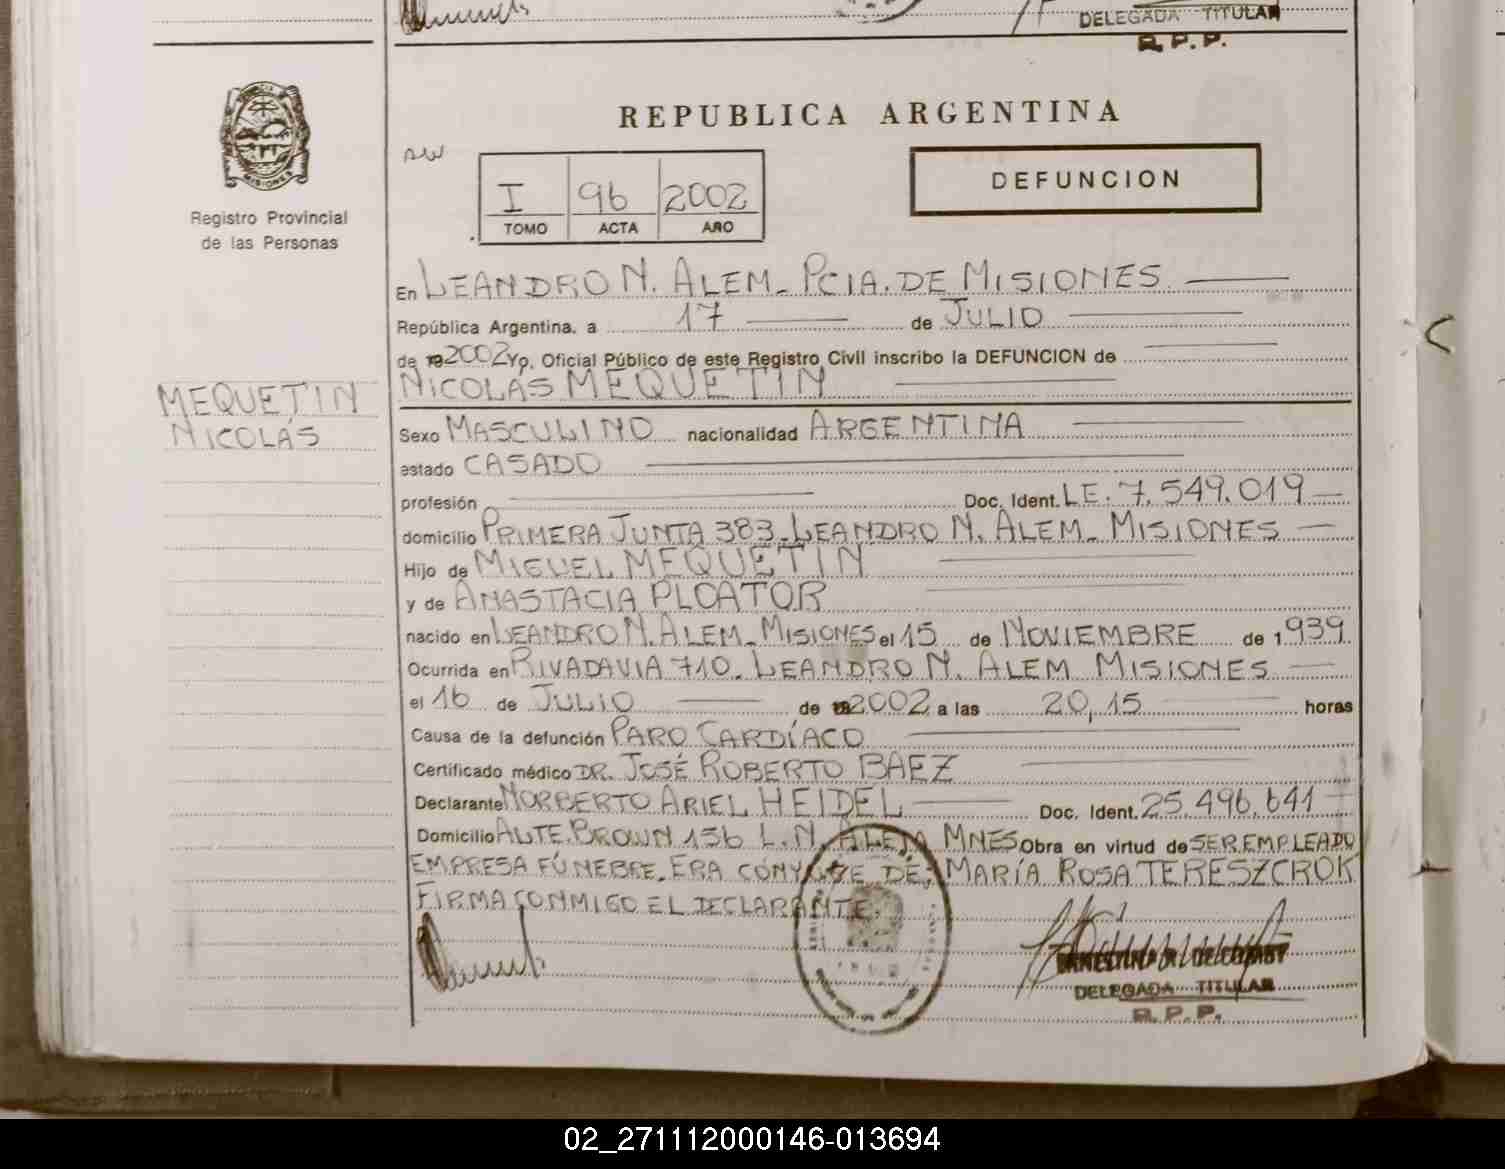 DELEGADA TITULAR
R.P.P.
MISIONES
Registro Provincial
de las Personas
MEQUETIN
NICOLÁS
REPUBLICA ARGENTINA
DEFUNCION
I 96 2002
TOMO ACTA AÑO
En LEANDRO N. ALEM - PCIA. DE MISIONES
República Argentina, a 17 de JULIO
de 19 2002 Yo, Oficial Público de este Registro Civil inscribo la DEFUNCION de
NICOLÁS MEQUETIN
Sexo MASCULINO nacionalidad ARGENTINA
estado CASADO
profesión Doc. Ident. LE. 7.549.019
domicilio PRIMERA JUNTA 383 - LEANDRO N. ALEM - MISIONES
Hijo de MIGUEL MEQUETIN
y de ANASTACIA PLOATOR
nacido en LEANDRO N. ALEM - MISIONES el 15 de NOVIEMBRE de 1.939
Ocurrida en RIVADAVIA 710 - LEANDRO N. ALEM MISIONES
el 16 de JULIO de 19 2002 a las 20,15 horas
Causa de la defunción PARO CARDÍACO
Certificado médico DR. JOSÉ ROBERTO BAEZ
Declarante NORBERTO ARIEL HEIDEL Doc. Ident. 25.496.641
Domicilio ALTE. BROWN 156 L.N. ALEM MNES. Obra en virtud de SER EMPLEADO
EMPRESA FÚNEBRE. ERA CÓNYUGE DE: MARÍA ROSA TERESZCROK
FIRMA CONMIGO EL DECLARANTE.
DELEGADA TITULAR
R.P.P.
02_271112000146-013694